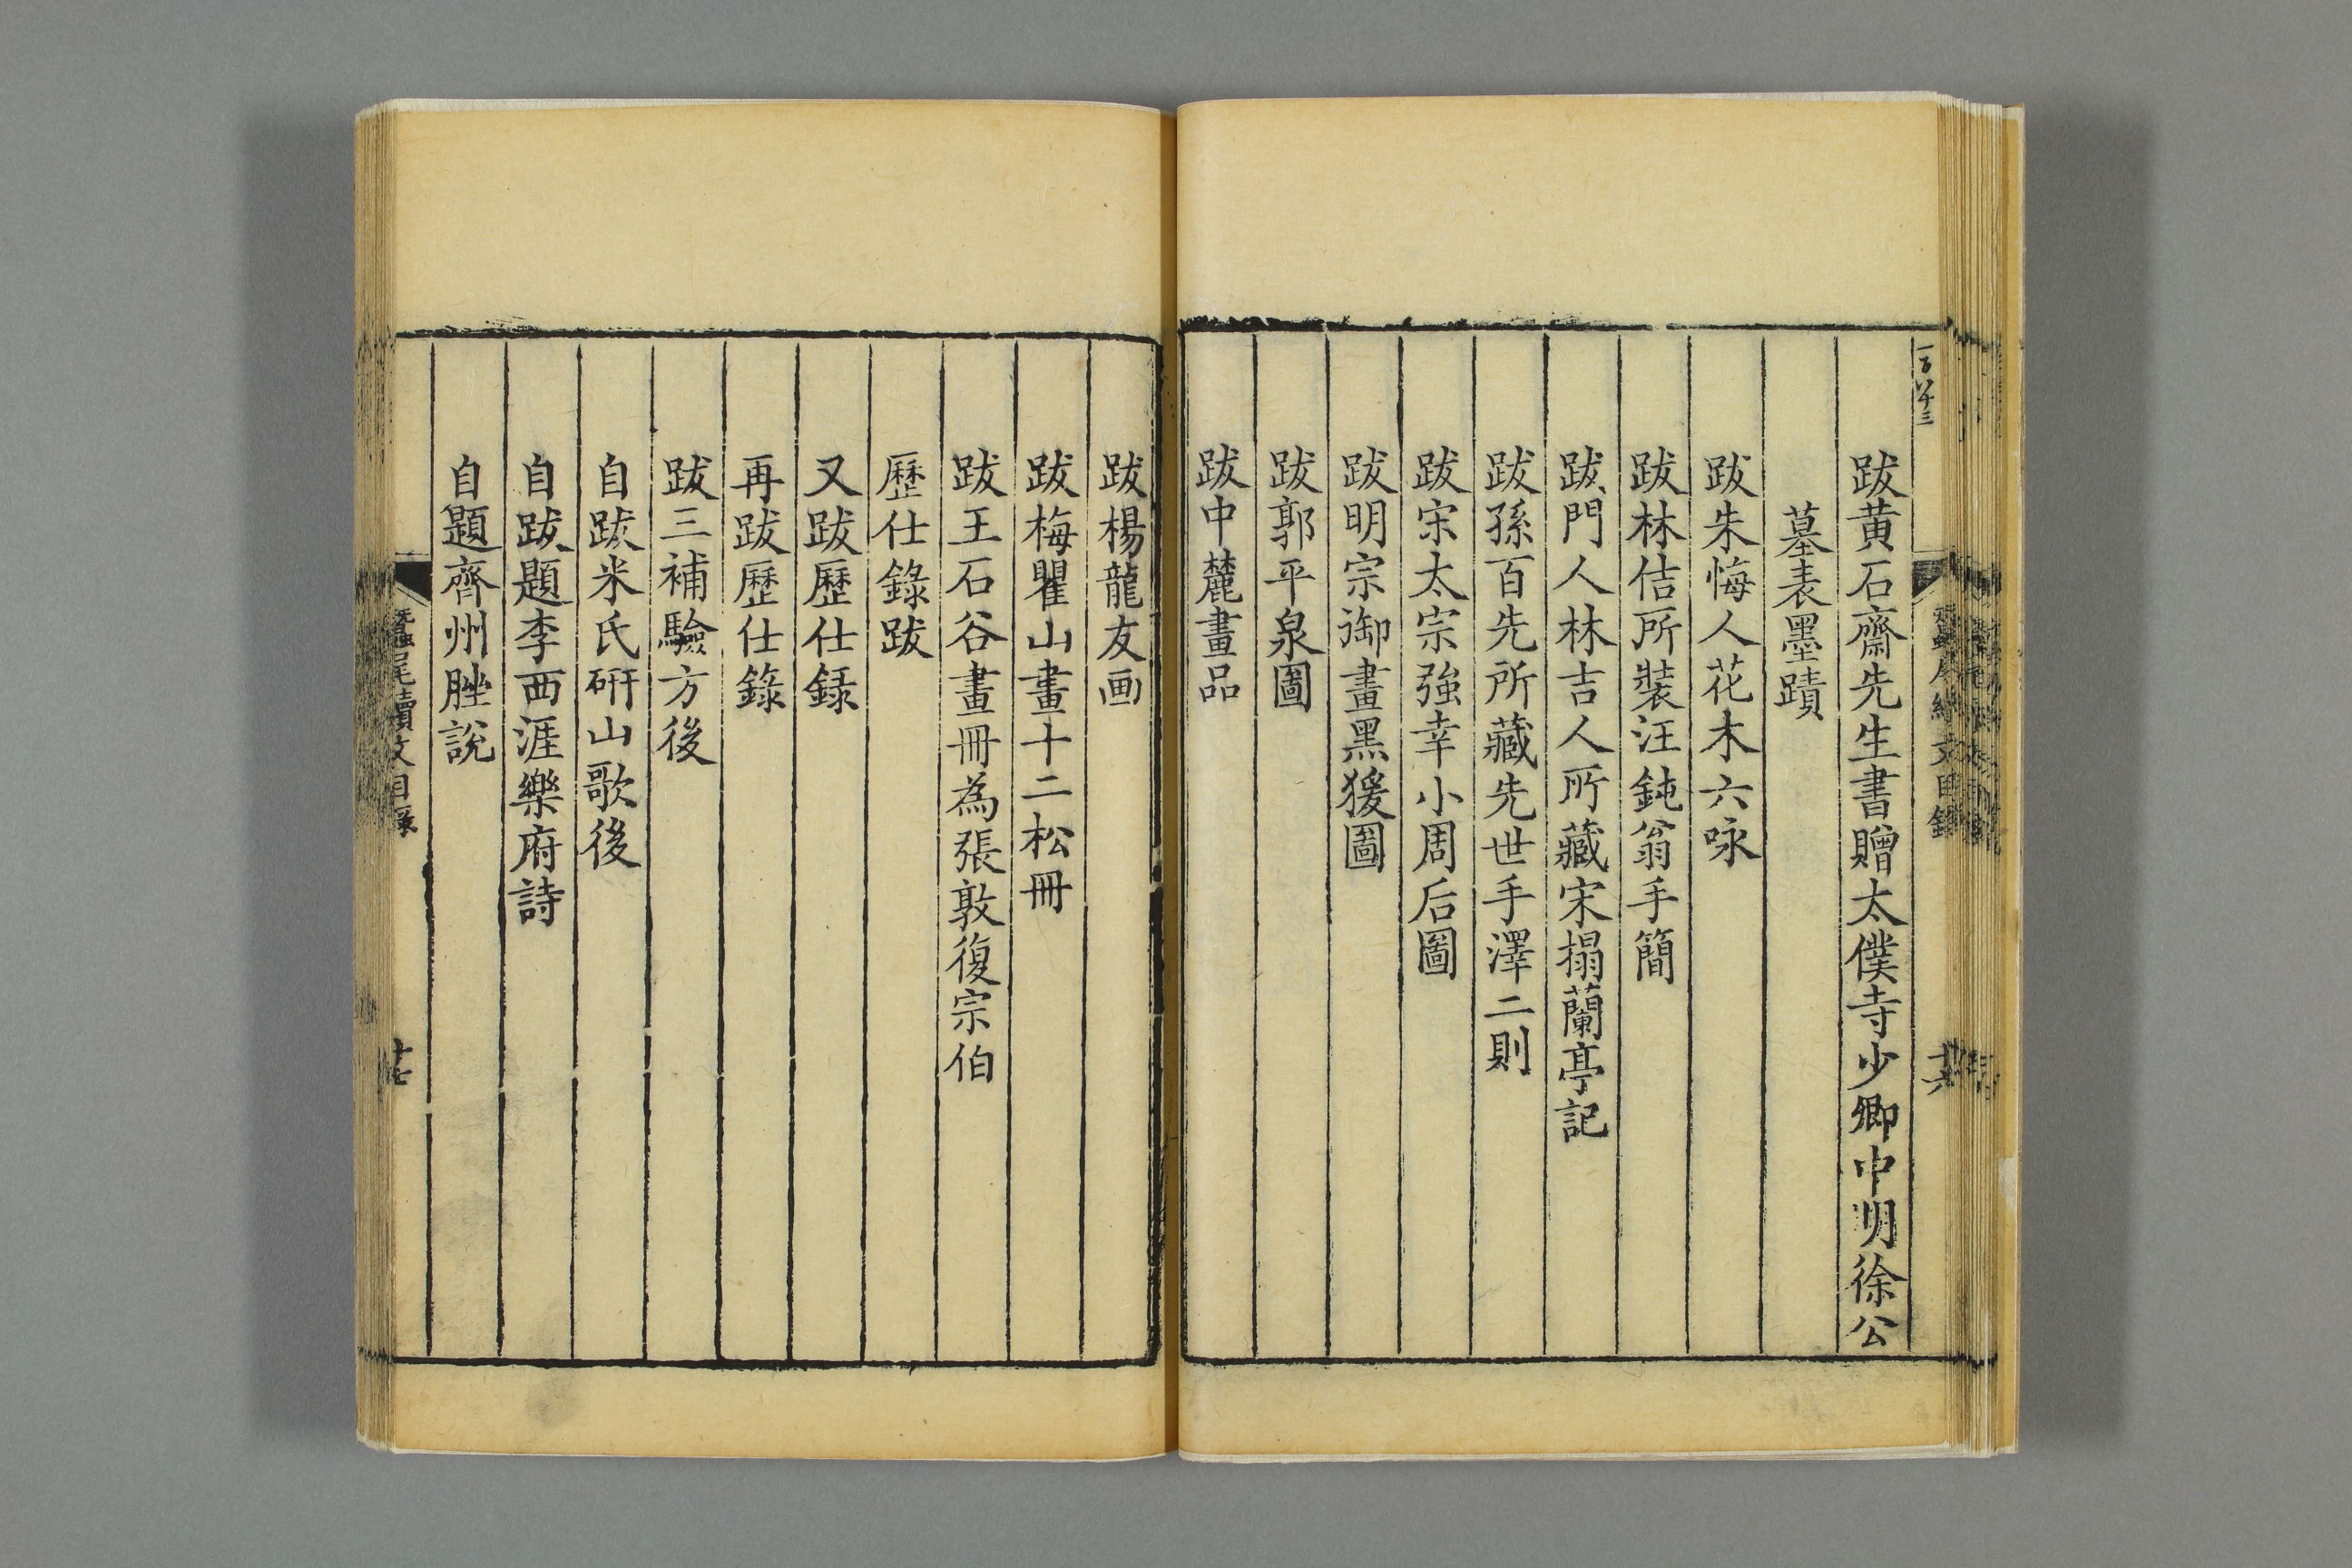 跋黄石齋先生書贈太僕寺少卿中明徐公
墓表墨蹟
跋朱悔人花木六咏
跋林佶所裝汪鈍翁手簡
跋門人林吉人所藏宋搨蘭亭記
跋孫百先所藏先世手澤二則
跋宋太宗強幸小周后圖
跋明宗御畫黑猨圖
跋郭平泉圖
跋中麓畫品
跋楊龍友画
跋梅瞿山畫十二松冊
跋王石谷畫冊為張敦復宗伯
歷仕錄跋
又跋歷仕錄
再跋歷仕錄
跋三補驗方後
自跋米氏硏山歌後
自跋題李西涯樂府詩
自題齊州脞說
蠶尾續文目錄